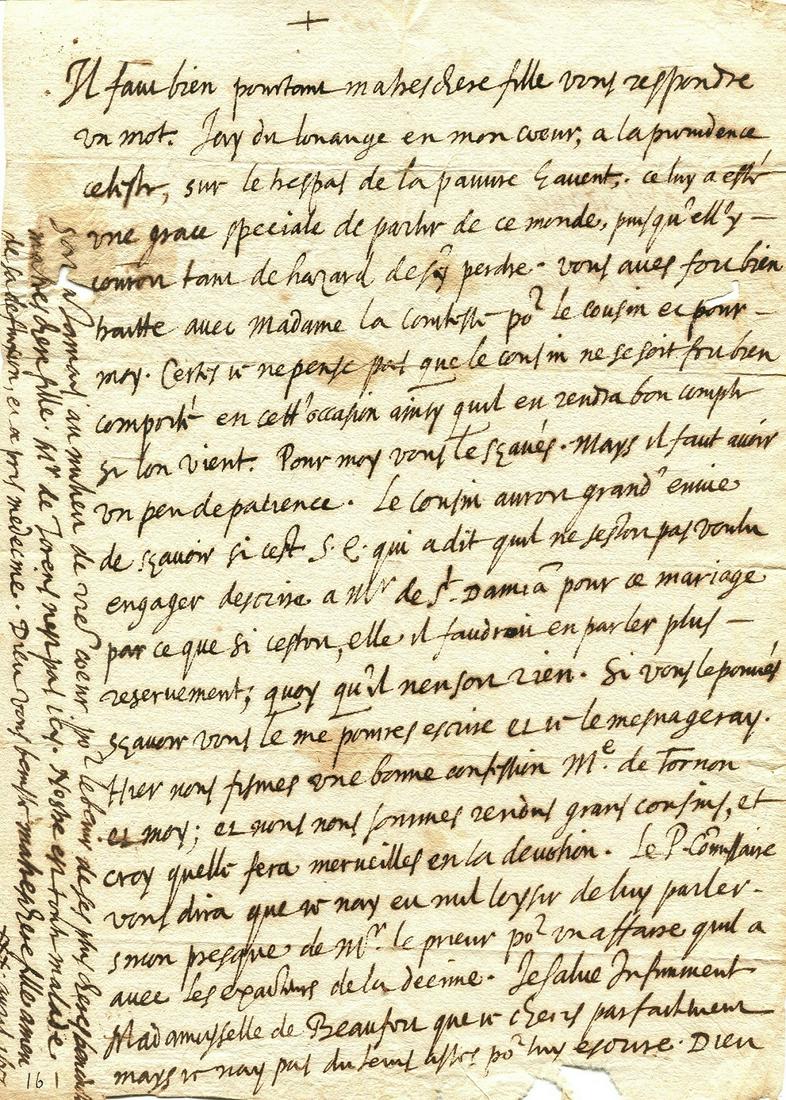 +
Il faut bien pourtant ma treschere fille vous respondre
un mot. J'ay du louange en mon cœur, a la providence
celeste, sur le trespas de la pauvre ce luy a esté
une grace speciale de partir de ce monde, puisqu'ell'y
couroit tant de hazard de s'y perdre. vous aves fort bien
traitté avec Madame la Comtesse po^r le cousin et pour
moy. Certes je ne pense pas que le cousin ne se soit fort bien
comporté en cett'occasion ainsy quil en rendra bon compte
si lon vient. Pour moy vous le sçavés. Mays il faut avoir
un peu de patience. Le cousin auroit grand'envie
de sçavoir si cest S. E. qui a dit quil ne sestoit pas voulu
engager descrire a M^r de S^t. Damiã pour ce mariage
par ce que si cestoit, elle il faudroit en parler plus
reservement, quoy qu'il nen soit rien. Si vous le pouvés
sçavoir vous le me pourres escrire et je le mesnageray.
Hier nous fismes une bonne confession M^e. de Tornon
et moy; et nous nous sommes rendus grans cousins, et
croy quelle fera merveilles en la devotion. Le P. Com̃issaire
vous dira que je nay eu nul loysir de luy parler
sinon presque de M^r. le prieur po^r un affaire quil a
avec les exacteurs de la decime. Je salue Infiniment
Madamoyselle de Beaufort que je cheris parfaitement
mays je nay pas du tems asses po^r luy escrire. Dieu
soit a jamais au milieu de vre^ cœur po^r le bénir de ses plus cheres
ma treschere fille. M^r de Torens nest pas icy. Nostre est toute malade
de sa defluxion, et a pris medecine. Dieu vous benisse ma treschere fille amen
16